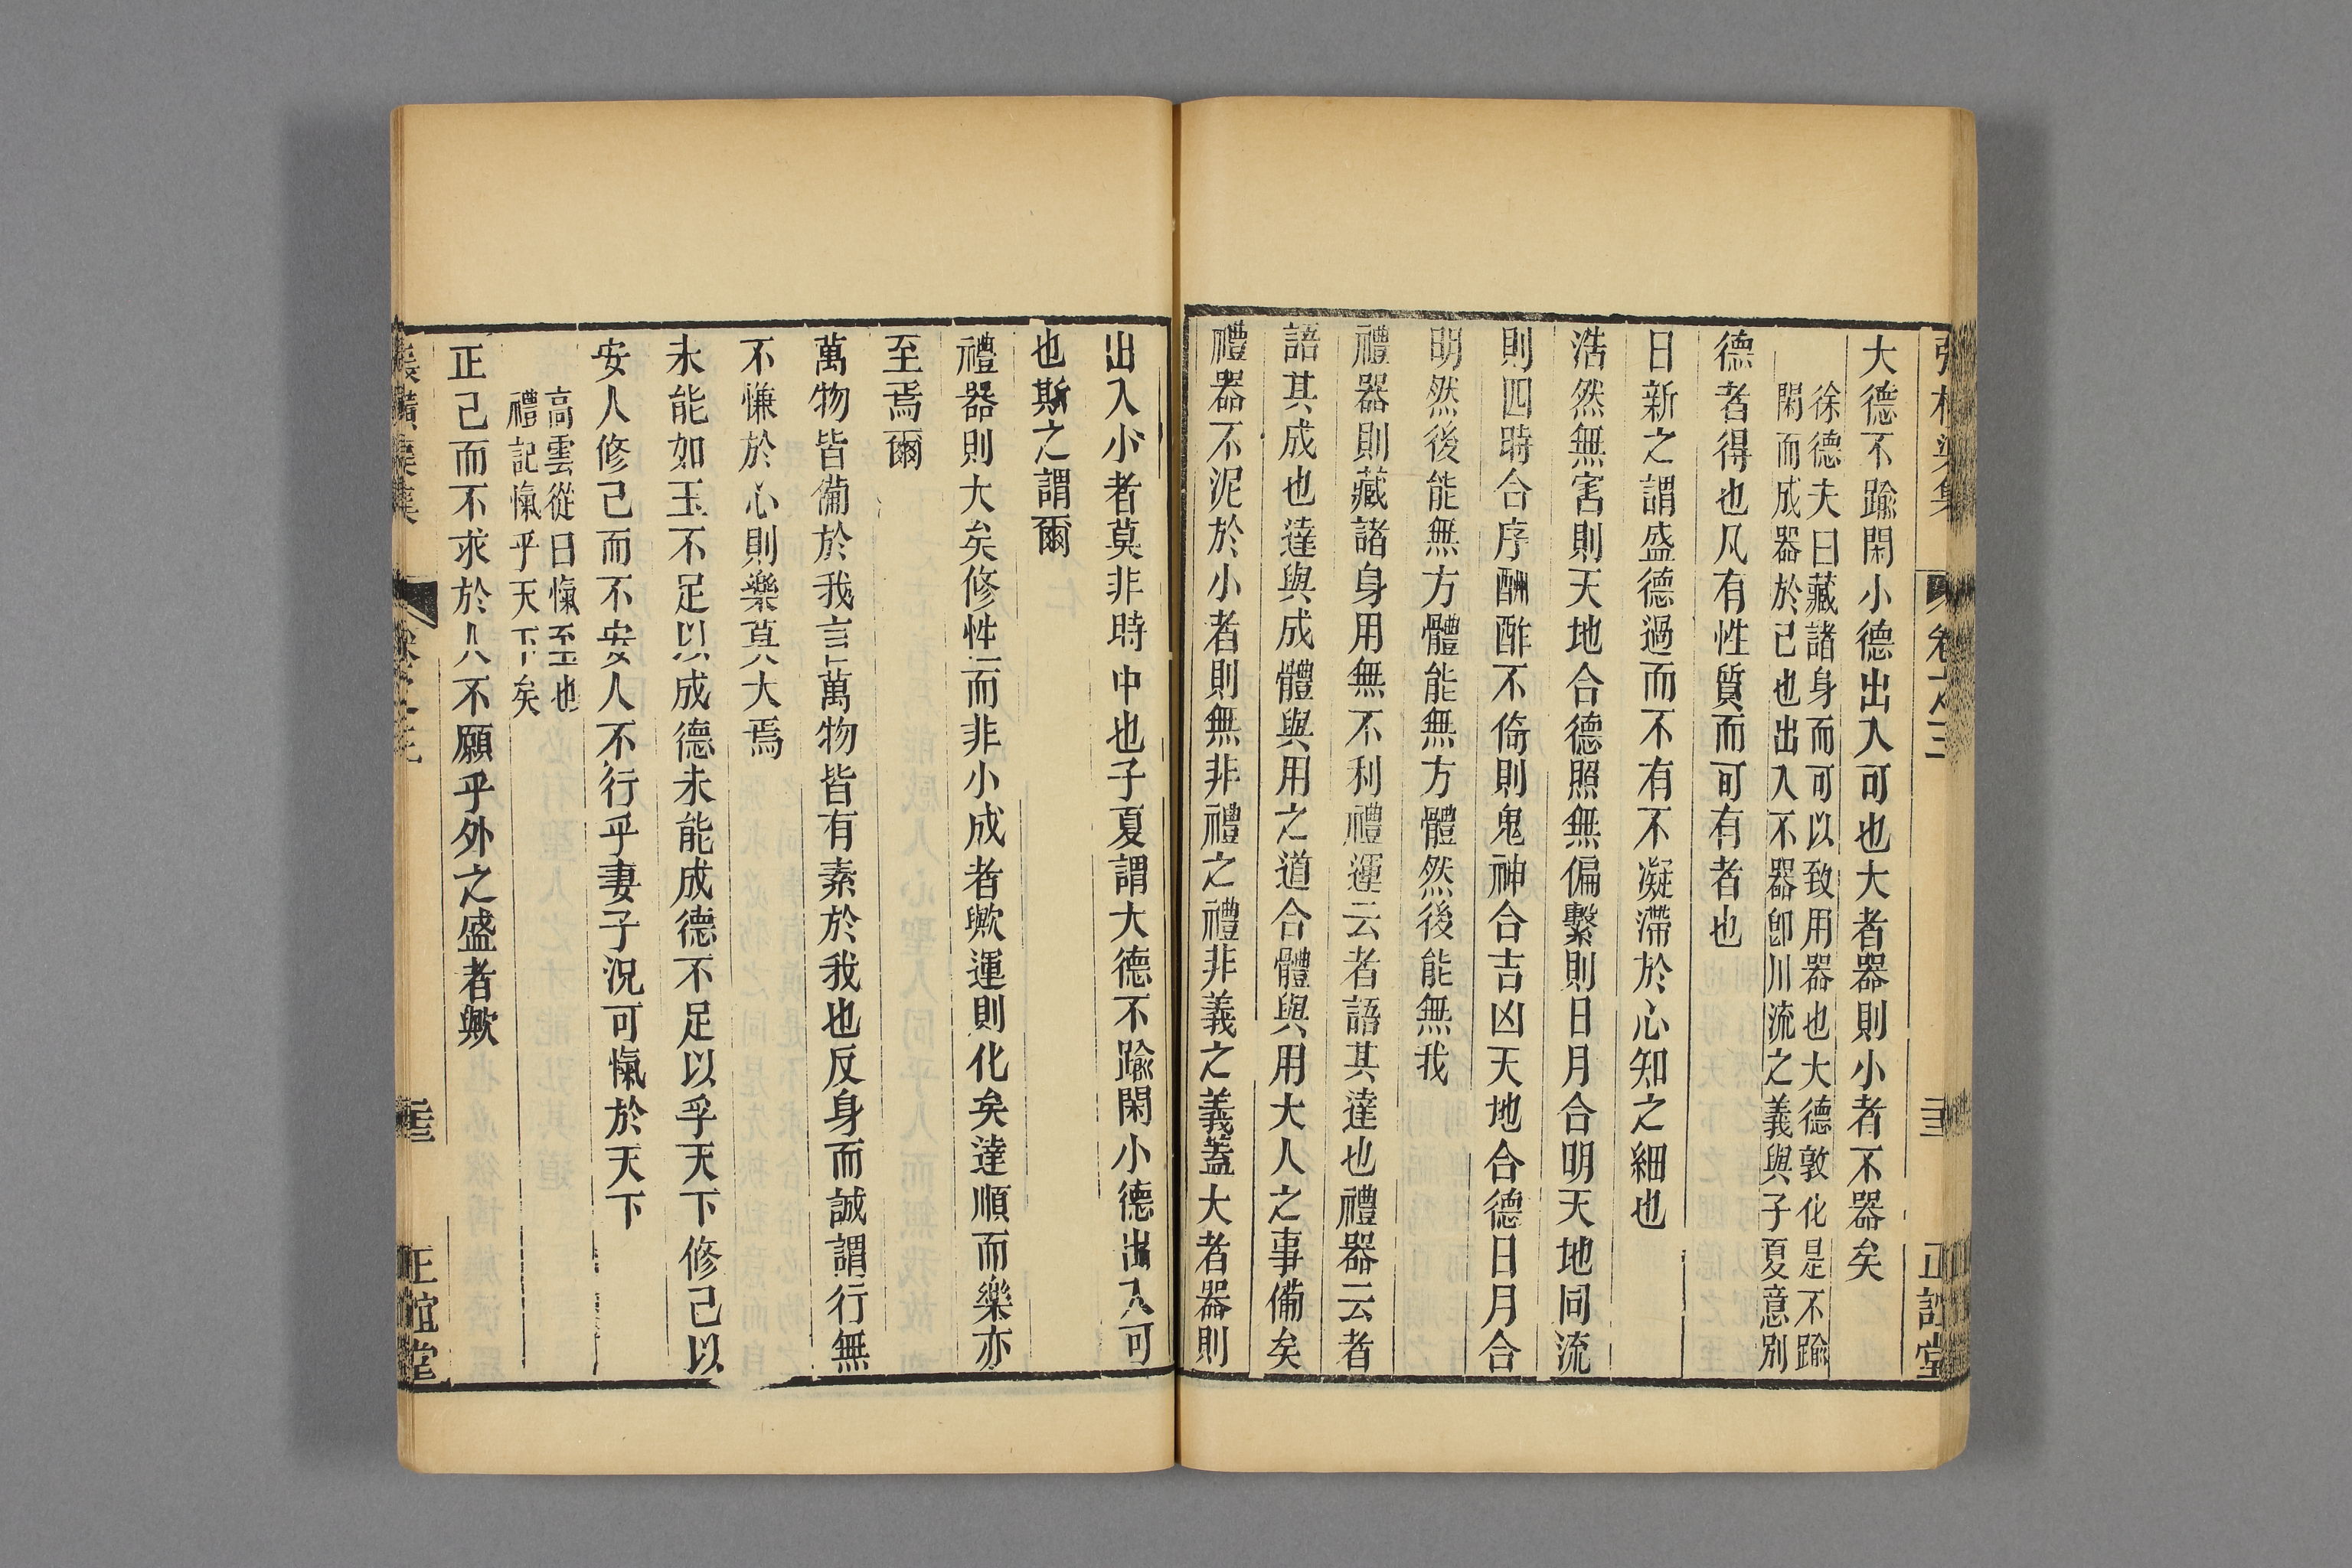 卷之三
正誼堂
大德不踰閑小德出入可也大者器則小者不器矣
徐德夫曰藏諸身而可以致用器也大德敦化是不踰
閑而成器於己也出入不器卽川流之義與子夏意別
德者得也凡有性質而可有者也
日新之謂盛德過而不有不凝滯於心知之細也
浩然無害則天地合德照無偏繫則日月合明天地同流
則四時合序酬酢不倚則鬼神合吉凶天地合德日月合
明然後能無方體能無方體然後能無我
禮器則藏諸身用無不利禮運云者語其達也禮器云者
語其成也達與成體與用之道合體與用大人之事備矣
禮器不泥於小者則無非禮之禮非義之義蓋大者器則
出入小者莫非時中也子夏謂大德不踰閑小德出入可
也斯之謂爾
禮器則大矣修性而非小成者歟運則化矣達順而樂亦
至焉爾
萬物皆備於我言萬物皆有素於我也反身而誠謂行無
不慊於心則樂莫大焉
未能如玉不足以成德未能成德不足以孚天下修己以
安人修己而不安人不行乎妻子況可愾於天下
高雲從曰愾至也
禮記愾乎天下矣
正己而不求於人不願乎外之盛者歟
張橫渠集
卷之三
正誼堂